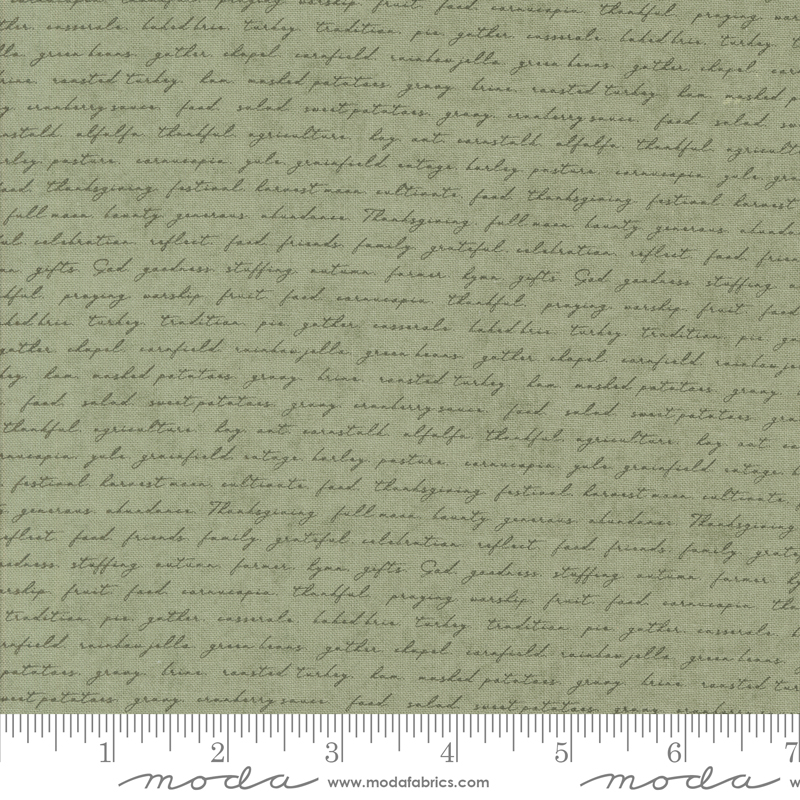 cornucopia. thankful. praying worship. fruit. food. cornucopia. thankful. praying
casserole. baked brie. turkey. tradition. pie. gather. casserole. baked brie. turkey.
green beans. gather. chapel. cornfield. rainbow jello. green beans. gather. chapel.
brine. roasted turkey. ham. mashed potatoes. gravy. brine. roasted turkey. ham. mashed
cranberry sauce. food. salad. sweet potatoes. gravy. cranberry sauce. food. salad.
alfalfa. thankful. agriculture. hay. oat. cornstalk. alfalfa. thankful.
pasture. cornucopia. yule. grainfield. cotage. barley. pasture. cornucopia. yule.
food. thanksgiving. festival. harvest moon. cultivate. food. thanksgiving. festival. harvest
full moon. bounty. generous. abundance. Thanksgiving. full moon. bounty. generous.
celebration. reflect. food. friends. family. grateful. celebration. reflect. food.
gifts. God. goodness. stuffing. autumn. farmer. hymn. gifts. God. goodness. stuffing
praying worship. fruit. food. cornucopia. thankful. praying. worship. fruit. food
turkey. tradition. pie. gather. casserole. baked brie. turkey. tradition. pie.
gather. chapel. cornfield. rainbow jello. green beans. gather. chapel. cornfield.
ham. mashed potatoes. gravy. brine. roasted turkey. ham. mashed potatoes. gravy.
food. salad. sweet potatoes. gravy. cranberry sauce. food. salad. sweet potatoes.
thankful. agriculture. hay. oat. cornstalk. alfalfa. thankful. agriculture. hay. oat.
yule. grainfield. cotage. barley. pasture. cornucopia. yule. grainfield. cotage.
festival. harvest moon. cultivate. food. thanksgiving. festival. harvest moon. cultivate.
generous. abundance. Thanksgiving. full moon. bounty. generous. abundance. Thanksgiving
reflect. food. friends. family. grateful. celebration. reflect. food. friends. family.
stuffing. autumn. farmer. hymn. gifts. God. goodness. stuffing. autumn. farmer
fruit. food. cornucopia. thankful. praying worship. fruit. food. cornucopia.
tradition. pie. gather. casserole. baked brie. turkey. tradition. pie. gather. casserole.
rainbow jello. green beans. gather. chapel. cornfield. rainbow jello. green beans.
potatoes. gravy. brine. roasted turkey. ham. mashed potatoes. gravy. brine. roasted
sweet potatoes. gravy. cranberry sauce. food. salad. sweet potatoes. gravy.
1 2 3 4 5 6 7
moda www.modafabrics.com moda